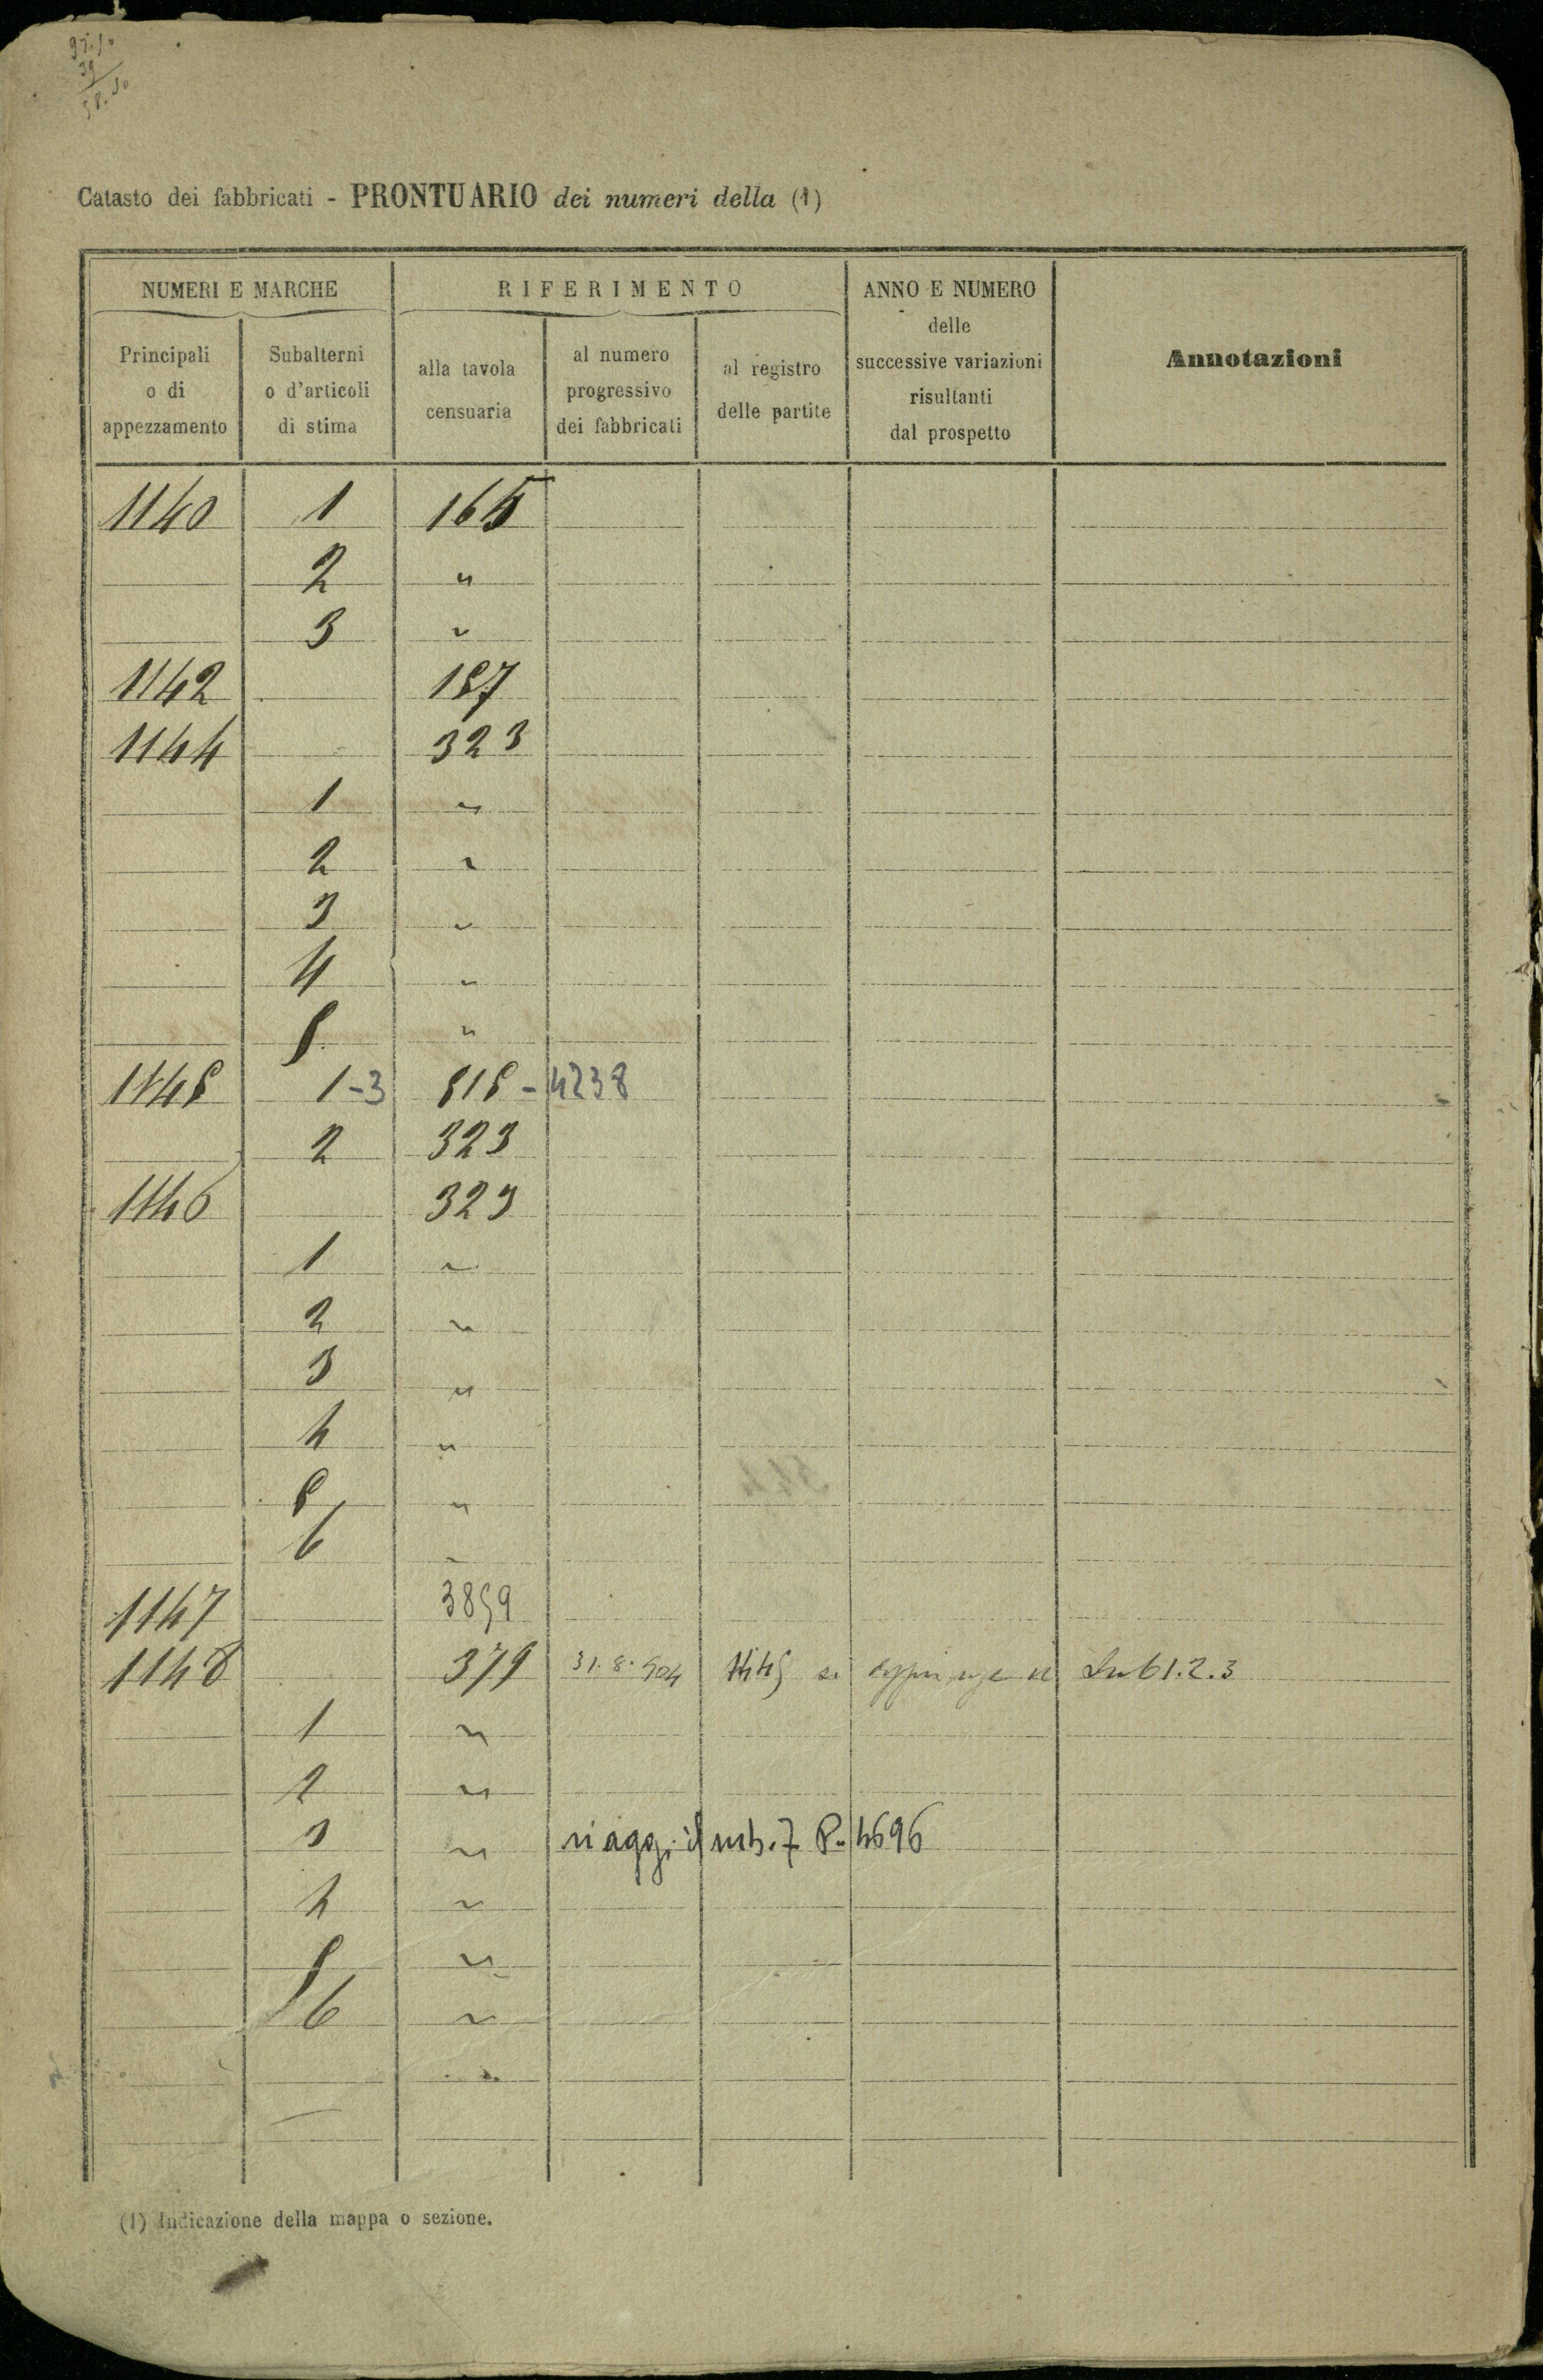 95.50
39
58.50
Catasto dei fabbricati - PRONTUARIO dei numeri della (1)
NUMERI E MARCHE
RIFERIMENTO
ANNO E NUMERO
delle
successive variazioni
risultanti
dal prospetto
Annotazioni
Principali
o di
appezzamento
Subalterni
o d'articoli
di stima
alla tavola
censuaria
al numero
progressivo
dei fabbricati
al registro
delle partite
1140 1 165
2 "
3 "
1142 187
1144 323
1 "
2 "
3 "
4 "
5 "
1145 1-3 515-4238
2 323
1146 323
1 "
2 "
3 "
4 "
5 "
6 "
1147 3859
1148 379 31.8.904 si Sub 1.2.3
1 "
2 "
3 " si agg. il sub. 7 P. 4696
4 "
5 "
6 "
"
(1) Indicazione della mappa o sezione.